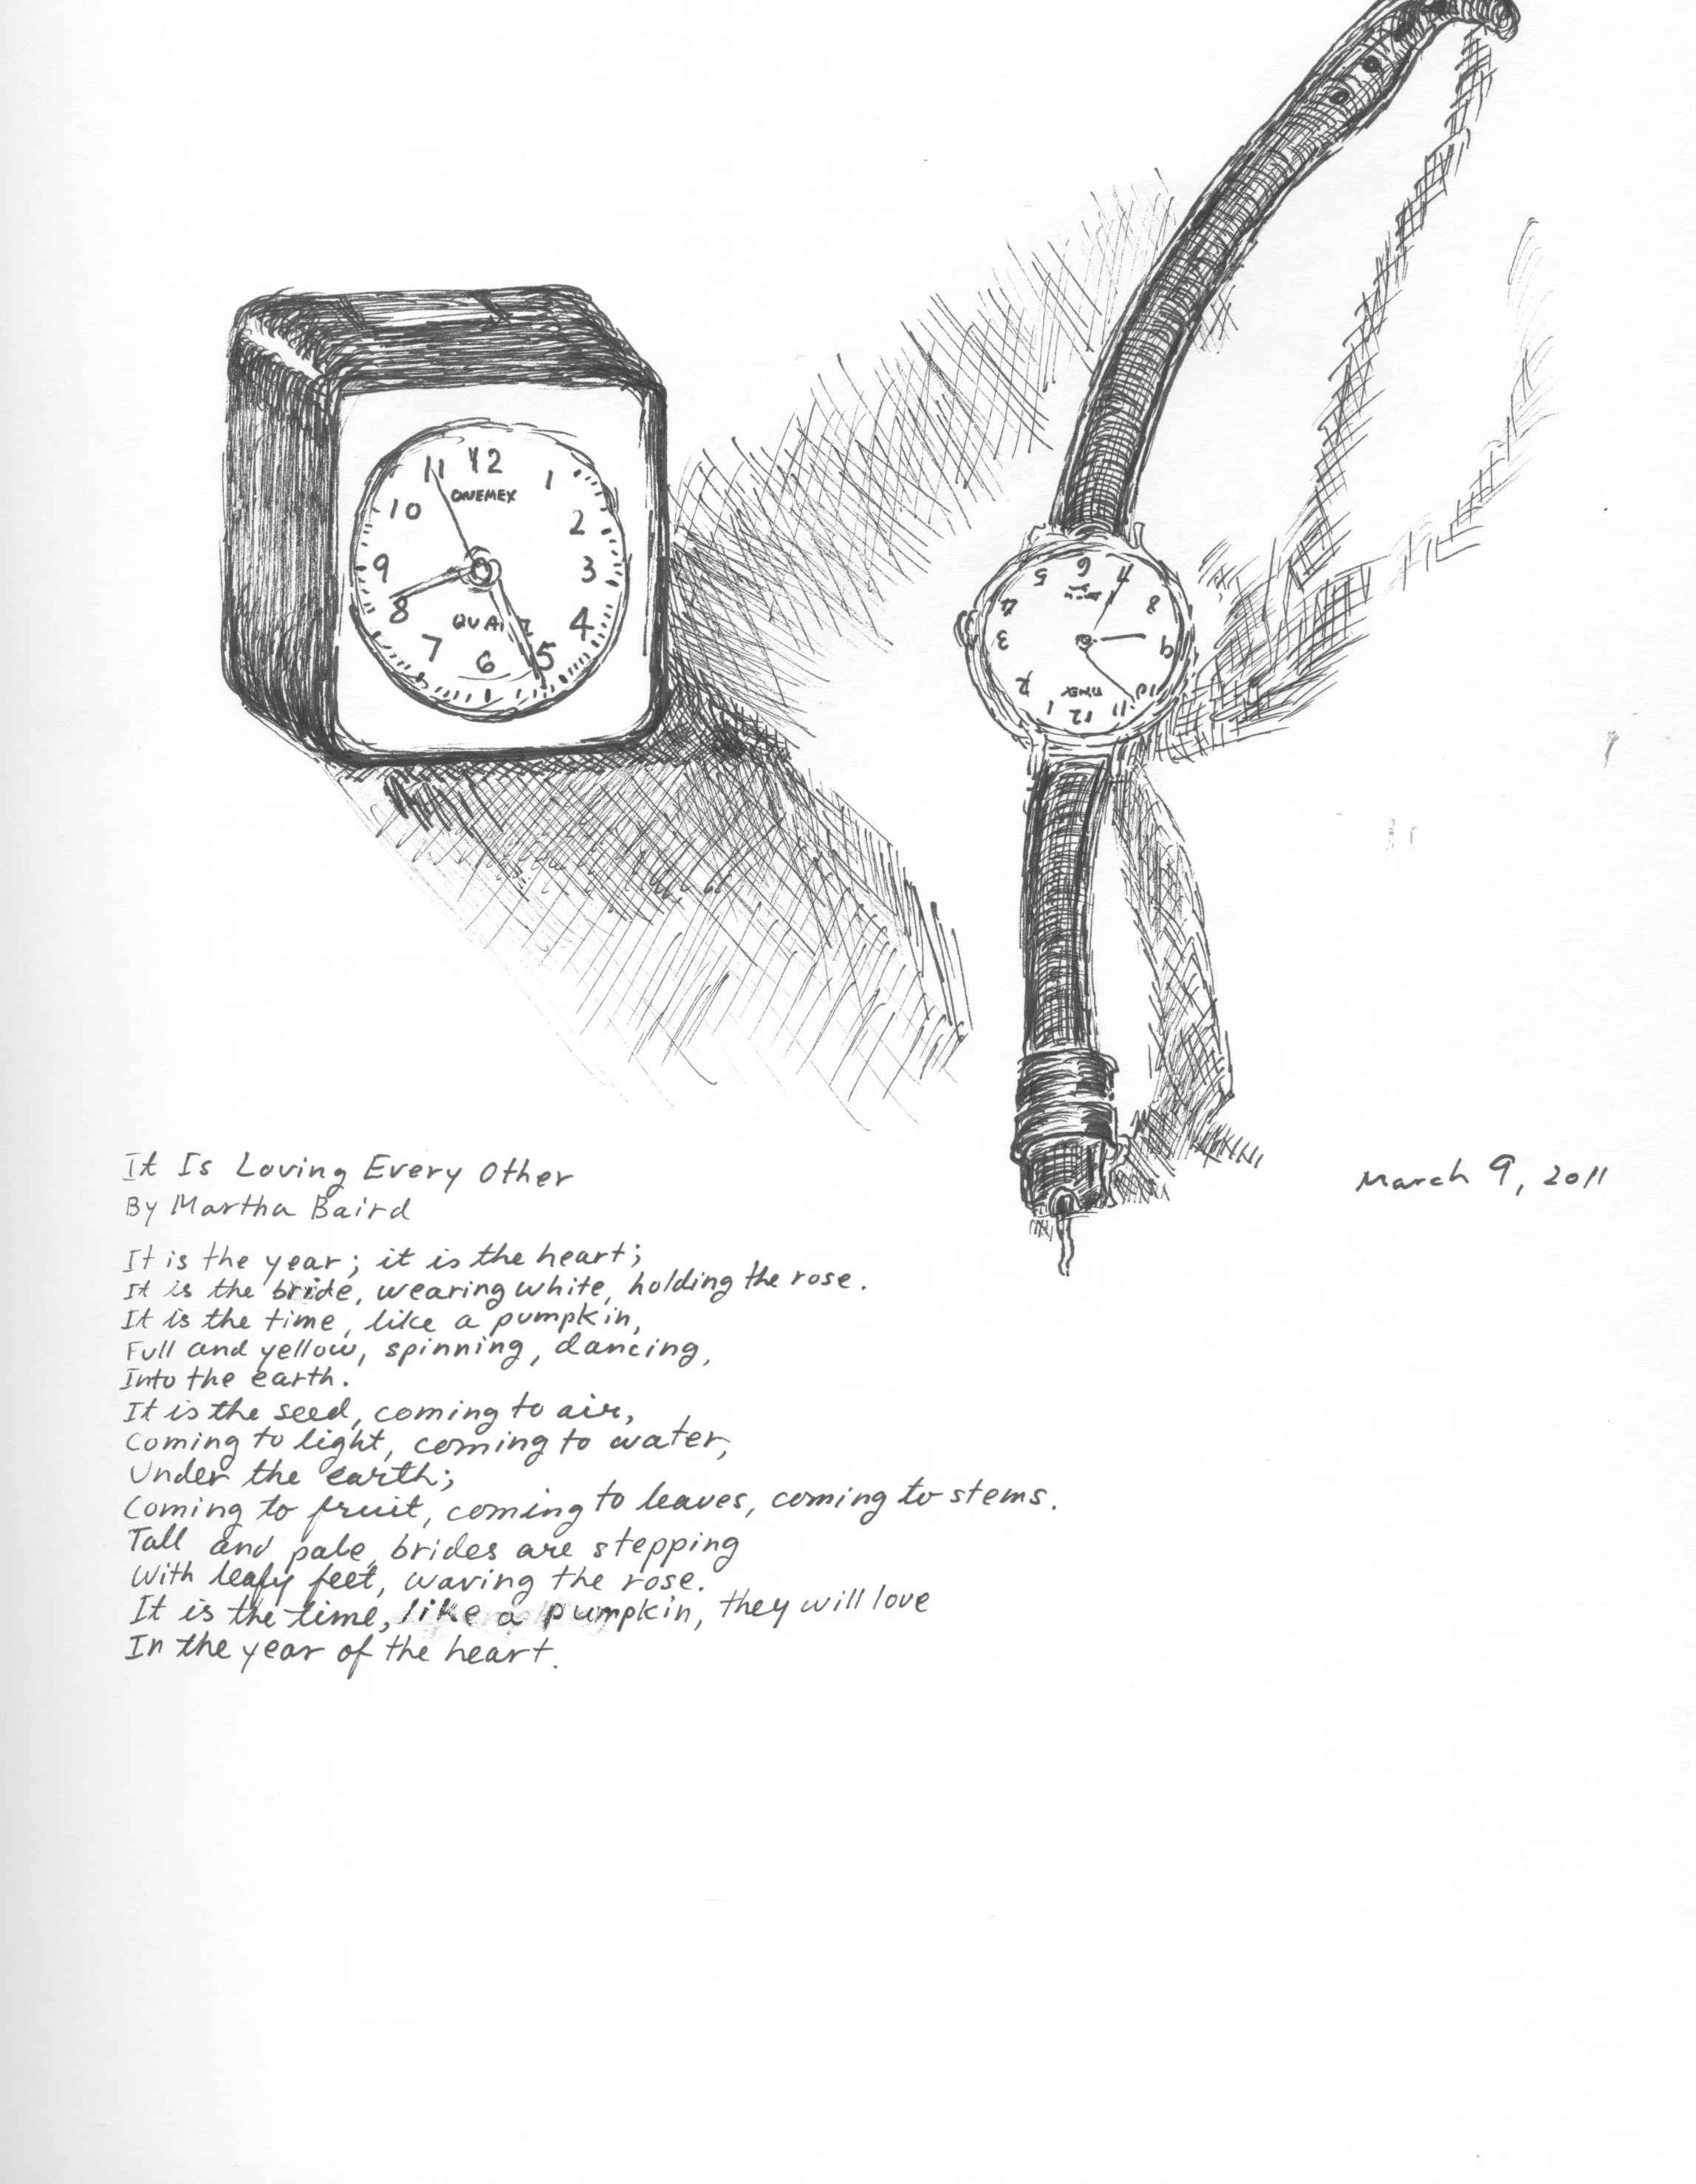 11 12 1
ONEMEX
10 2
9 3
8 4
QUA
7 6 5
5 6 7
4 8
3 9
2 10
TIMEX
1 12 11
It Is Loving Every Other
By Martha Baird
March 9, 2011
It is the year; it is the heart;
It is the bride, wearing white, holding the rose.
It is the time, like a pumpkin,
Full and yellow, spinning, dancing,
Into the earth.
It is the seed, coming to air,
Coming to light, coming to water,
Under the earth;
Coming to fruit, coming to leaves, coming to stems.
Tall and pale, brides are stepping
With leafy feet, waving the rose.
It is the time, like a pumpkin, they will love
In the year of the heart.